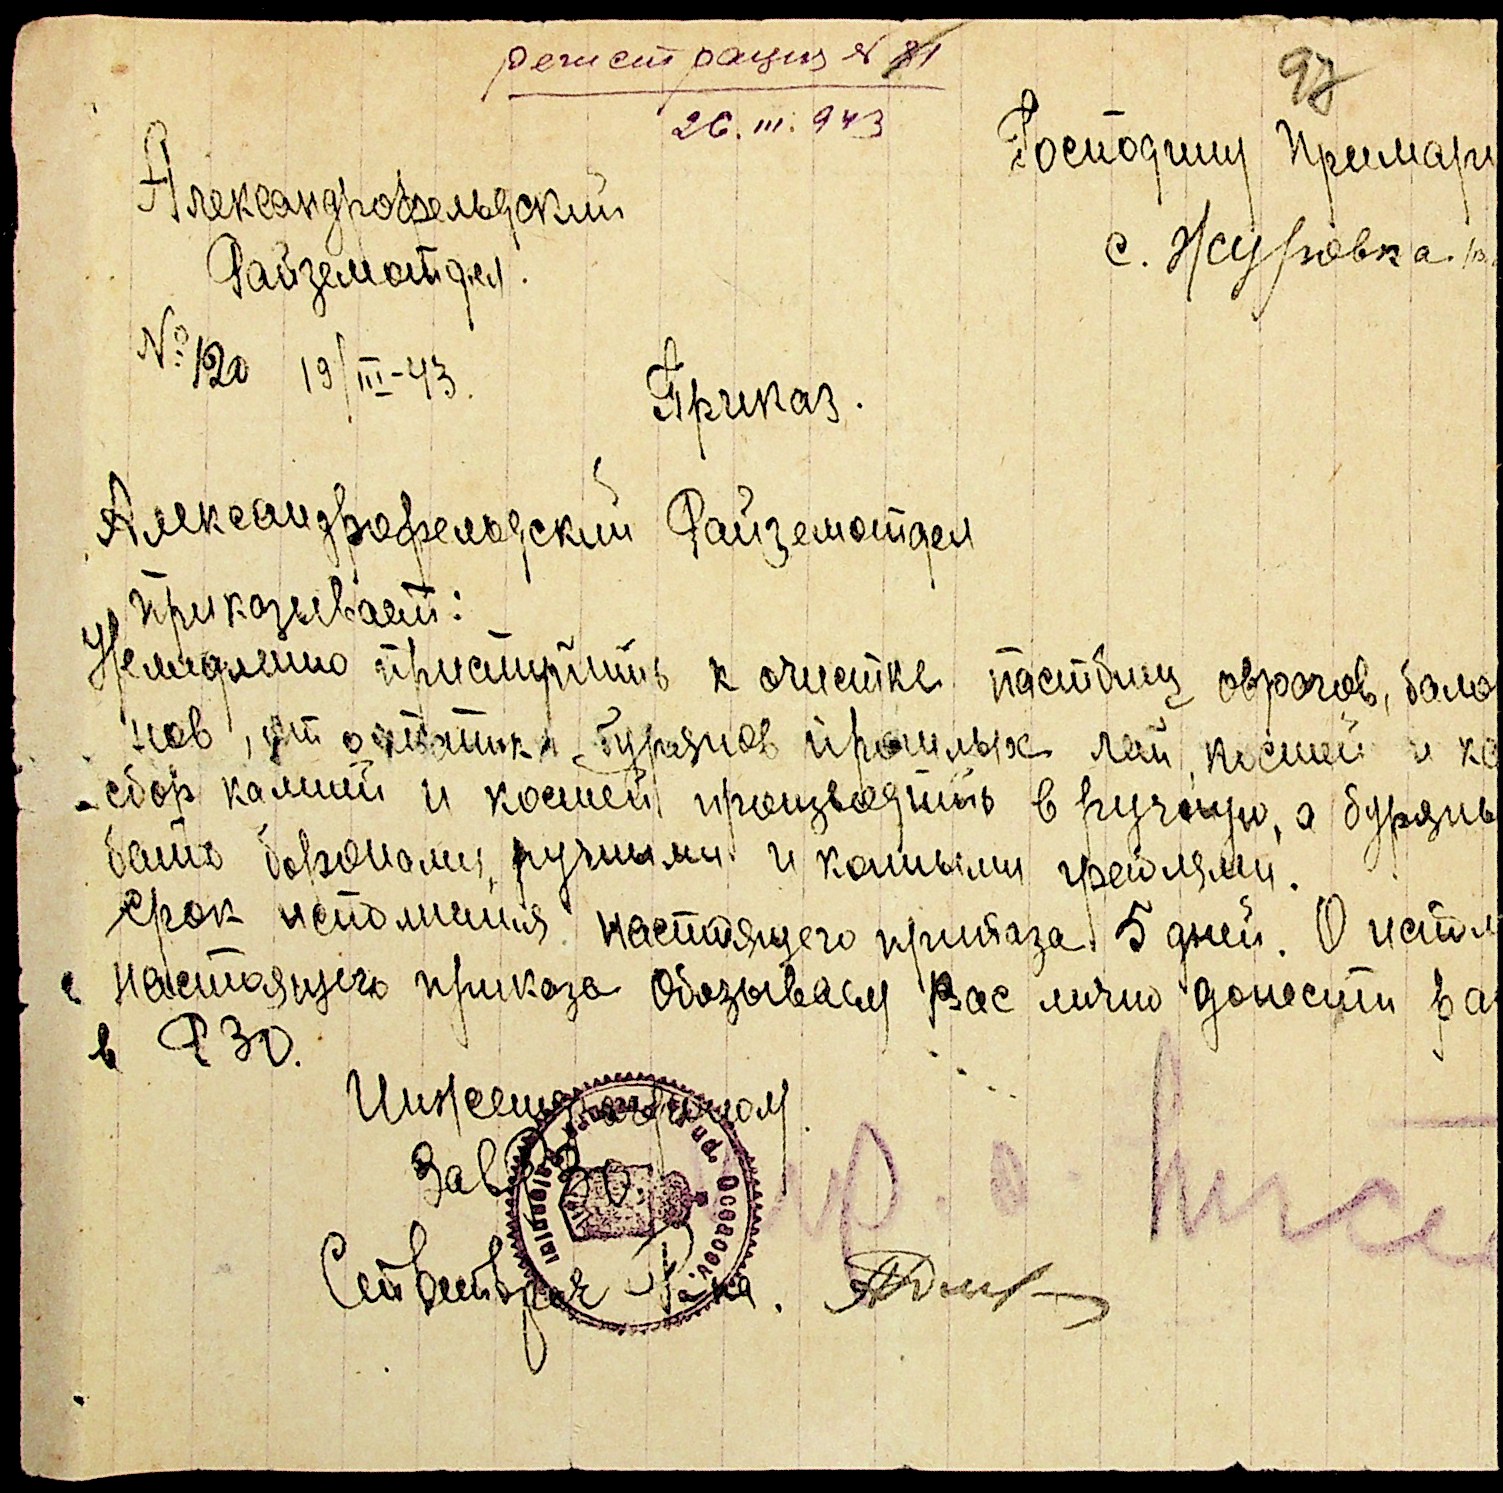 регистрация № 81
26.III.943
97
Господину Примарю
с. Журовка
Александрофельдский
Райземотдел.
№ 120 19/III-43.
Приказ.
Александрофельдский Райземотдел
приказывает:
Немедленно приступить к очистке пастбищ оврагов, бало
нов, от остатка бурянов прошлых лет, костей и ка
сбор камней и костей производить в ручную, а буряны
бать боронами, ручными и конными греблями.
Срок исполнения настоящего приказа 5 дней. О испол
настоящего приказа Обязываем Вас лично донести ра
в РЗО.
Инженер агроном
Зав РЗО.
Секретарь Р-на.